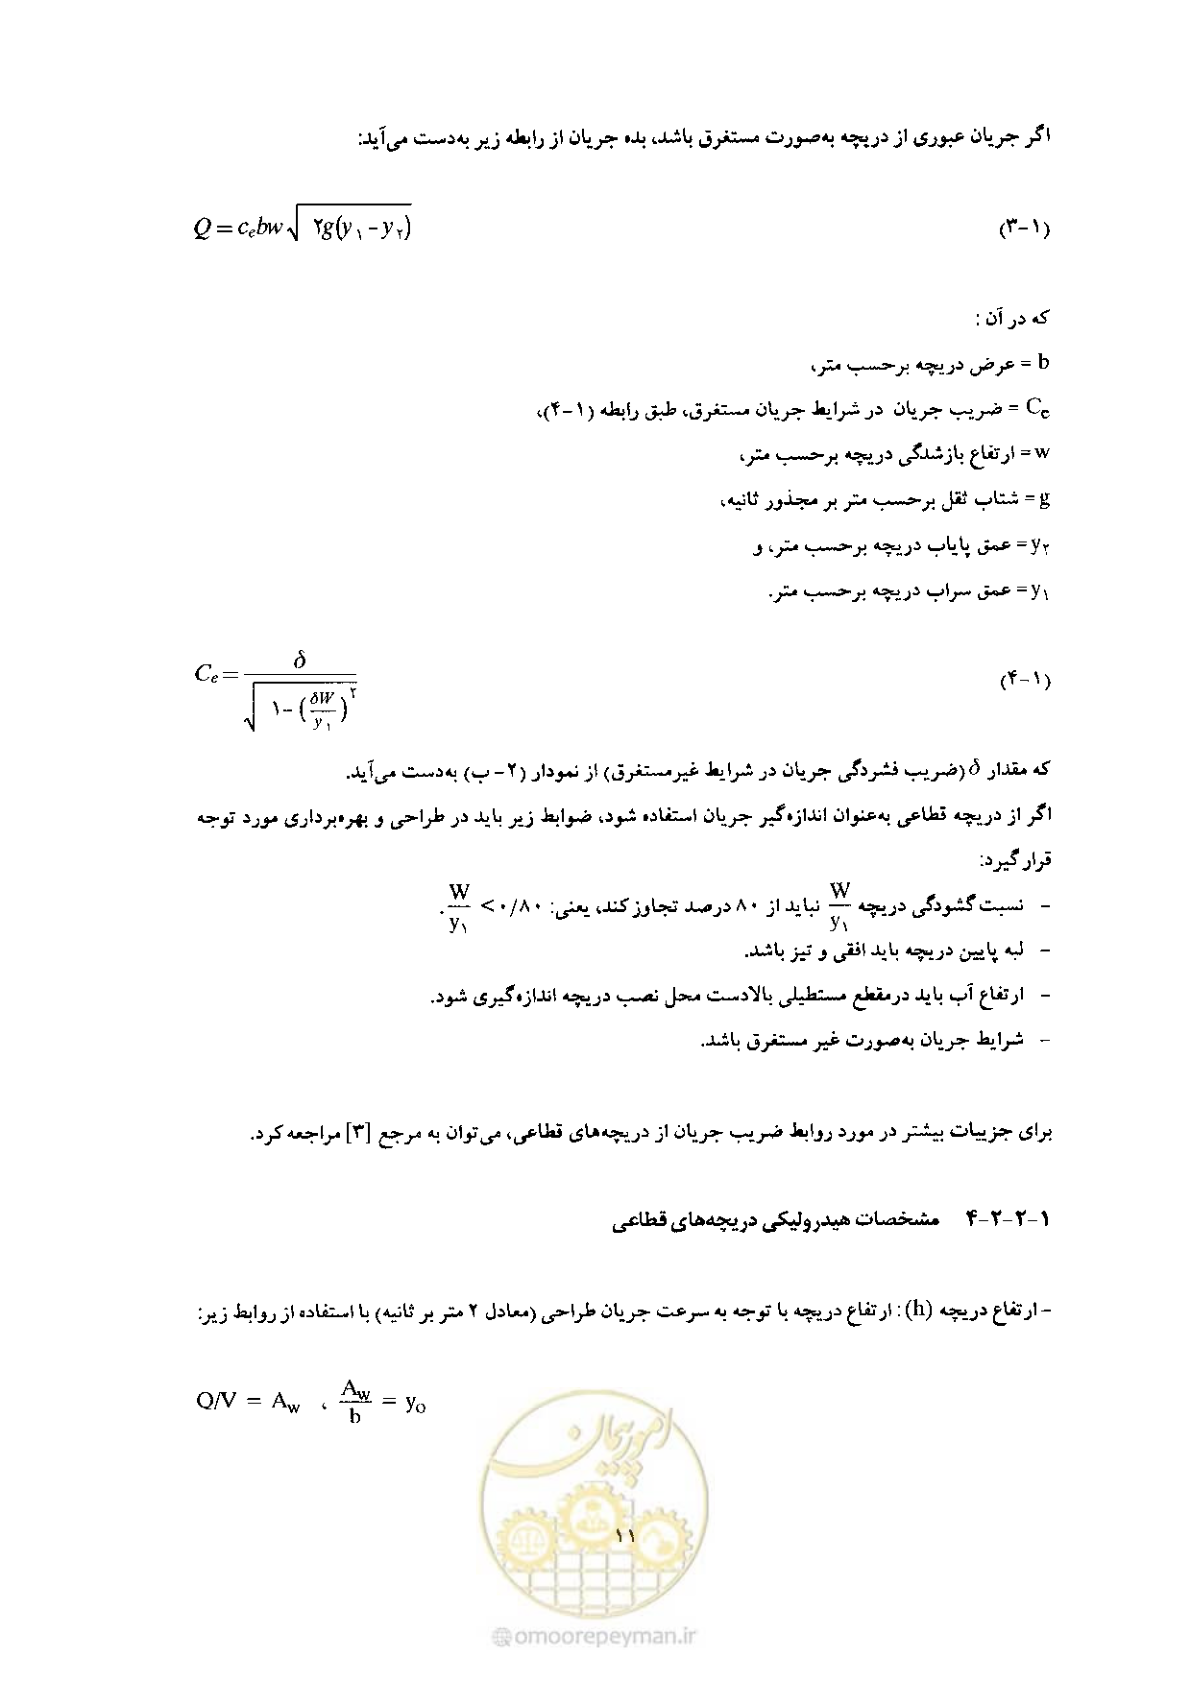 اگر جریان عبوری از دریچه به‌صورت مستغرق باشد، بده جریان از رابطه زیر به‌دست می‌آید:
(۳-۱) Q = cₑbw√۲g(y۱ - y۲)
که در آن :
b = عرض دریچه برحسب متر،
Cₑ = ضریب جریان در شرایط جریان مستغرق، طبق رابطه (۴-۱)،
w = ارتفاع بازشدگی دریچه برحسب متر،
g = شتاب ثقل برحسب متر بر مجذور ثانیه،
y۲ = عمق پایاب دریچه برحسب متر، و
y۱ = عمق سراب دریچه برحسب متر.
(۴-۱) Cₑ = δ / √۱-(δW/y۱)^۲
که مقدار δ (ضریب فشردگی جریان در شرایط غیرمستغرق) از نمودار (۲- ب) به‌دست می‌آید.
اگر از دریچه قطاعی به‌عنوان اندازه‌گیر جریان استفاده شود، ضوابط زیر باید در طراحی و بهره‌برداری مورد توجه
قرار گیرد:
- نسبت گشودگی دریچه W/y۱ نباید از ۸۰ درصد تجاوز کند، یعنی: W/y۱ < ۰/۸۰.
- لبه پایین دریچه باید افقی و تیز باشد.
- ارتفاع آب باید درمقطع مستطیلی بالادست محل نصب دریچه اندازه‌گیری شود.
- شرایط جریان به‌صورت غیر مستغرق باشد.
برای جزییات بیشتر در مورد روابط ضریب جریان از دریچه‌های قطاعی، می‌توان به مرجع [۳] مراجعه کرد.
۴-۲-۲-۱ مشخصات هیدرولیکی دریچه‌های قطاعی
- ارتفاع دریچه (h) : ارتفاع دریچه با توجه به سرعت جریان طراحی (معادل ۲ متر بر ثانیه) با استفاده از روابط زیر:
Q/V = A_w ، A_w/b = y₀
امورپیمان
۱۱
@omoorepeyman.ir